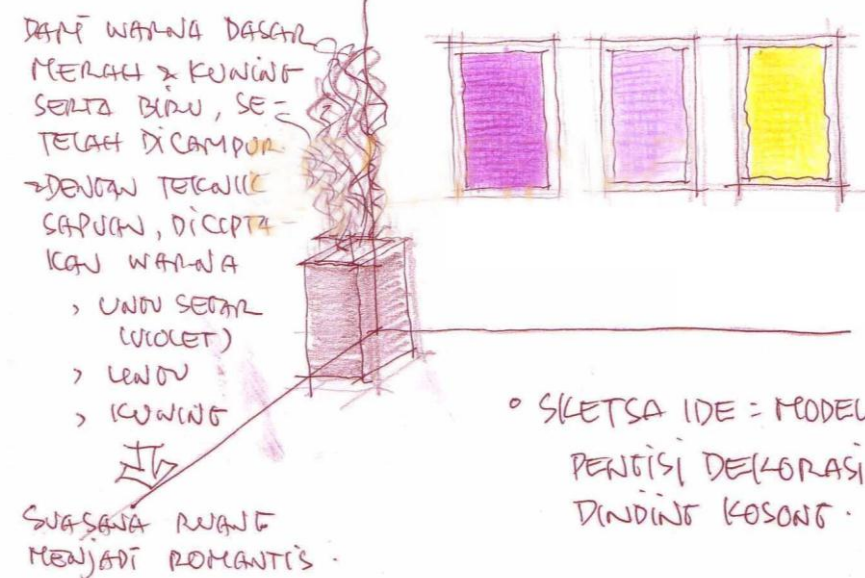 DARI WARNA DASAR
MERAH & KUNING
SERTA BIRU, SE-
TELAH DICAMPUR
DENGAN TEKNIK
SAPUAN, DICIPTA-
KAN WARNA
> UNGU SEGAR
(VIOLET)
> UNGU
> KUNING
SUASANA RUANG
MENJADI ROMANTIS.
• SKETSA IDE = MODEL
PENGISI DEKORASI
DINDING KOSONG.